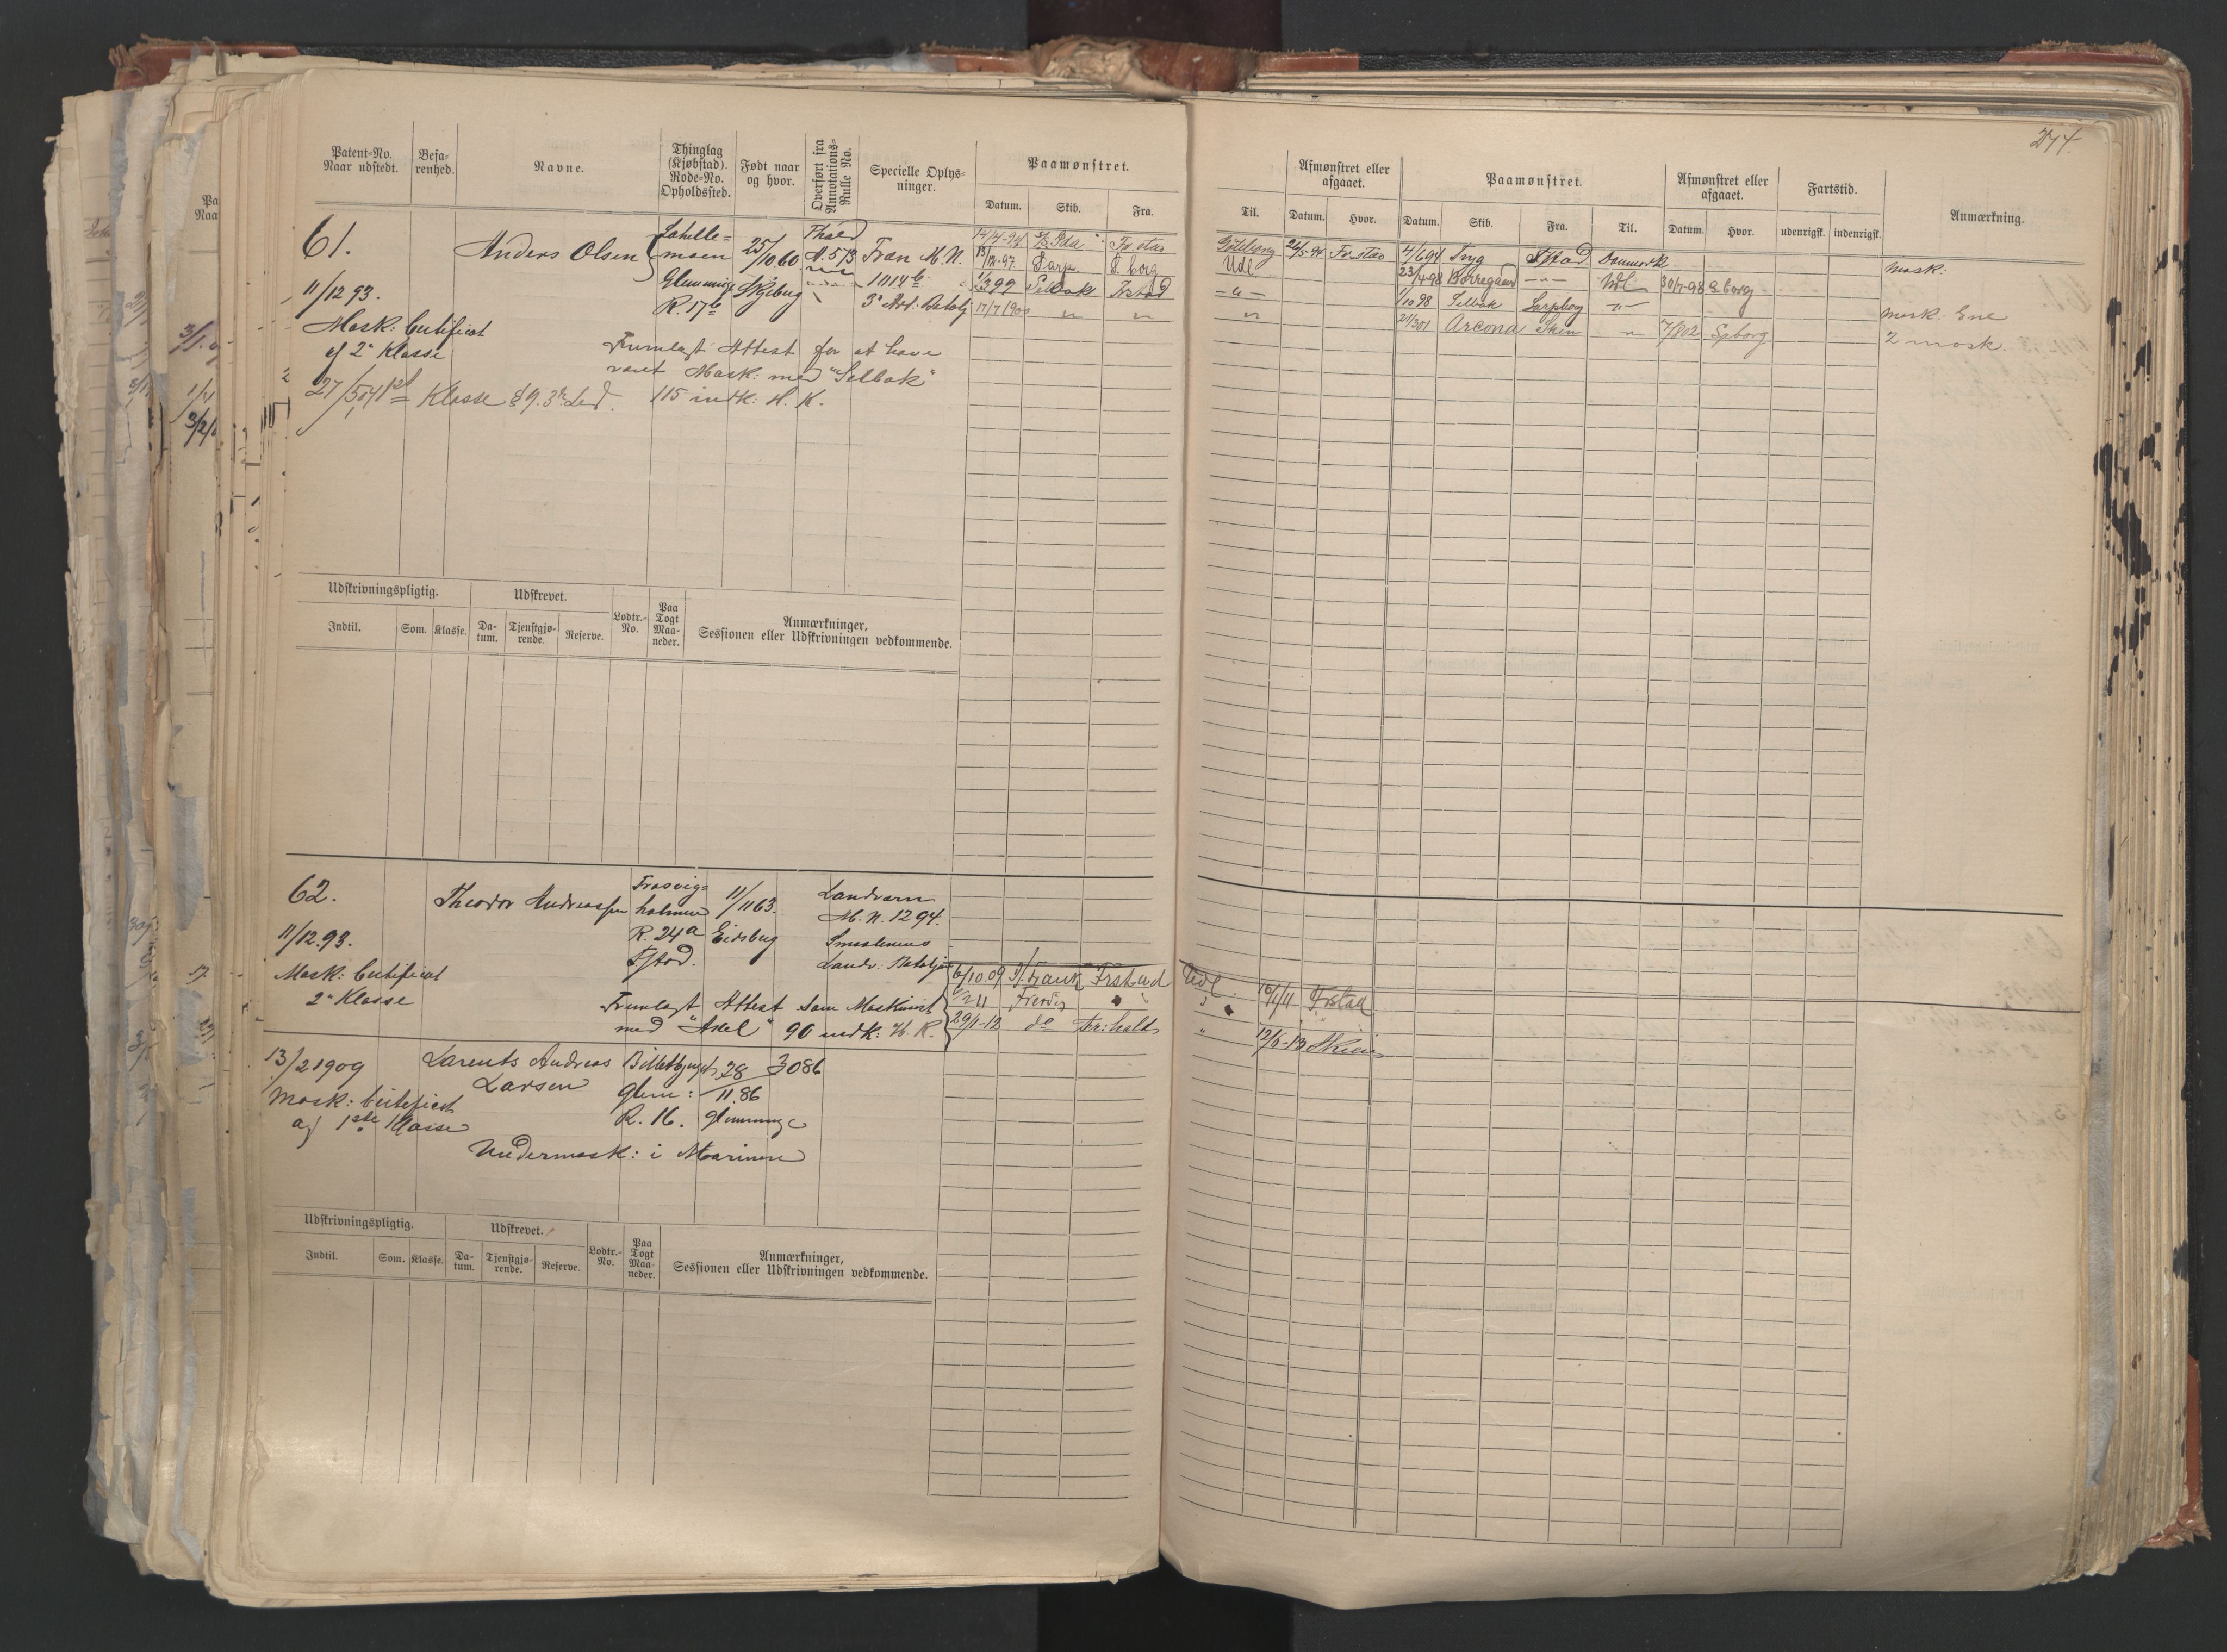 Patent-No. Naar udstedt.
Befarenhed.
Navne.
Thinglag (Kjøbstad). Rode-No. Opholdssted.
Født naar og hvor.
Overført fra Annotations-Rulle No.
Specielle Oplysninger.
Paamønstret.
Datum. Skib. Fra.
61.
11/12 93.
Mask: Certificat
af 2' Klasse
Anders Olsen
Glemminge
R. 17b
25/10 60
Skjeberg
A. 573
Fran M. N.
1114b
3' Art. Batalj
14/4-94 Ida Fr.stad
13/12-97 Sarp S.borg
Selbak Frstad
17/7 1900 " "
Fremlagt Attest for at have
været Mask: med "Selbak"
115 indk: H. K.
Klasse § 9. 3' Led.
Udskrivningspligtig.
Udskrevet.
Lodtr.-No.
Paa Togt Maaneder.
Anmærkninger, Sessionen eller Udskrivningen vedkommende.
Indtil. Som. Klasse. Datum. Tjenstgjørende. Reserve.
62.
11/12.93.
Mask: Certificat
2' Klasse
Theodor Andreassen
holmen
R. 24a
Fstad.
11/11 63.
Eidsberg
Landværn
M. N. 1294.
Smaalenens
Landv. Batalj
Fremlagt Attest som Maskinist
med "Axel" 90 indk: H. K.
6/10.09 Frstad
29/1-12 do
13/2 1909
Mask: Certificat
af 1ste Klasse
Larents Andreas
Larsen
Glem:
R. 16.
28/11.86
Glemminge
3086
Undermask: i Marinen
Udskrivningspligtig.
Udskrevet.
Lodtr.-No.
Paa Togt Maaneder.
Anmærkninger, Sessionen eller Udskrivningen vedkommende.
Indtil. Som. Klasse. Datum. Tjenstgjørende. Reserve.
274.
Til.
Afmønstret eller afgaaet.
Datum. Hvor.
Paamønstret.
Datum. Skib. Fra. Til.
Afmønstret eller afgaaet.
Datum. Hvor.
Fartstid.
udenrigsk. indenrigsk.
Anmærkning.
Göteborg 26/5-94 Fr.stad 4/6 94 Tryg Fstad Danmark Mask:
Udl 23/4-98 Borregaard -"- Udl 30/7-98 S.borg
-"- 1/10 98 Selbak Sarpborg -"- Mask: Ene
" 21/3 01 Arcona Skien " 7/8 02 Spborg 2 mask.
Udl. Frstad
" 12/6-13 Skien